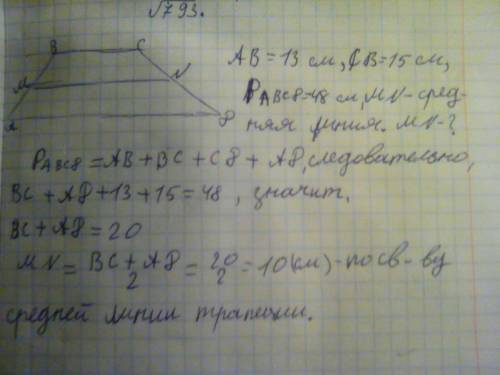 √793.
B C
M N
A D
AB = 13 см, CD = 15 см,
PABCD = 48 см, MN - сред-
няя линия. MN - ?
PABCD = AB + BC + CD + AD, следовательно,
BC + AD + 13 + 15 = 48, значит,
BC + AD = 20
MN = BC + AD / 2 = 20 / 2 = 10 (см) - по св-ву
средней линии трапеции.